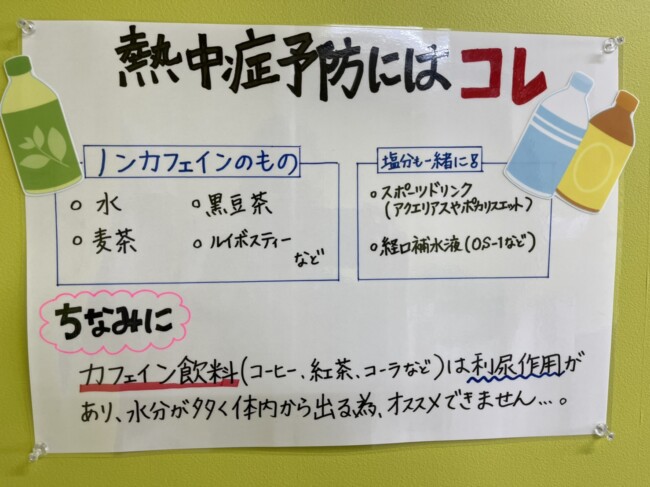 熱中症予防にはコレ
ノンカフェインのもの
○ 水
○ 黒豆茶
○ 麦茶
○ ルイボスティー
など
塩分も一緒に
○ スポーツドリンク
(アクエリアスやポカリスエット)
○ 経口補水液(OS-1など)
ちなみに
カフェイン飲料(コーヒー、紅茶、コーラなど)は利尿作用が
あり、水分が多く体内から出る為、オススメできません…。